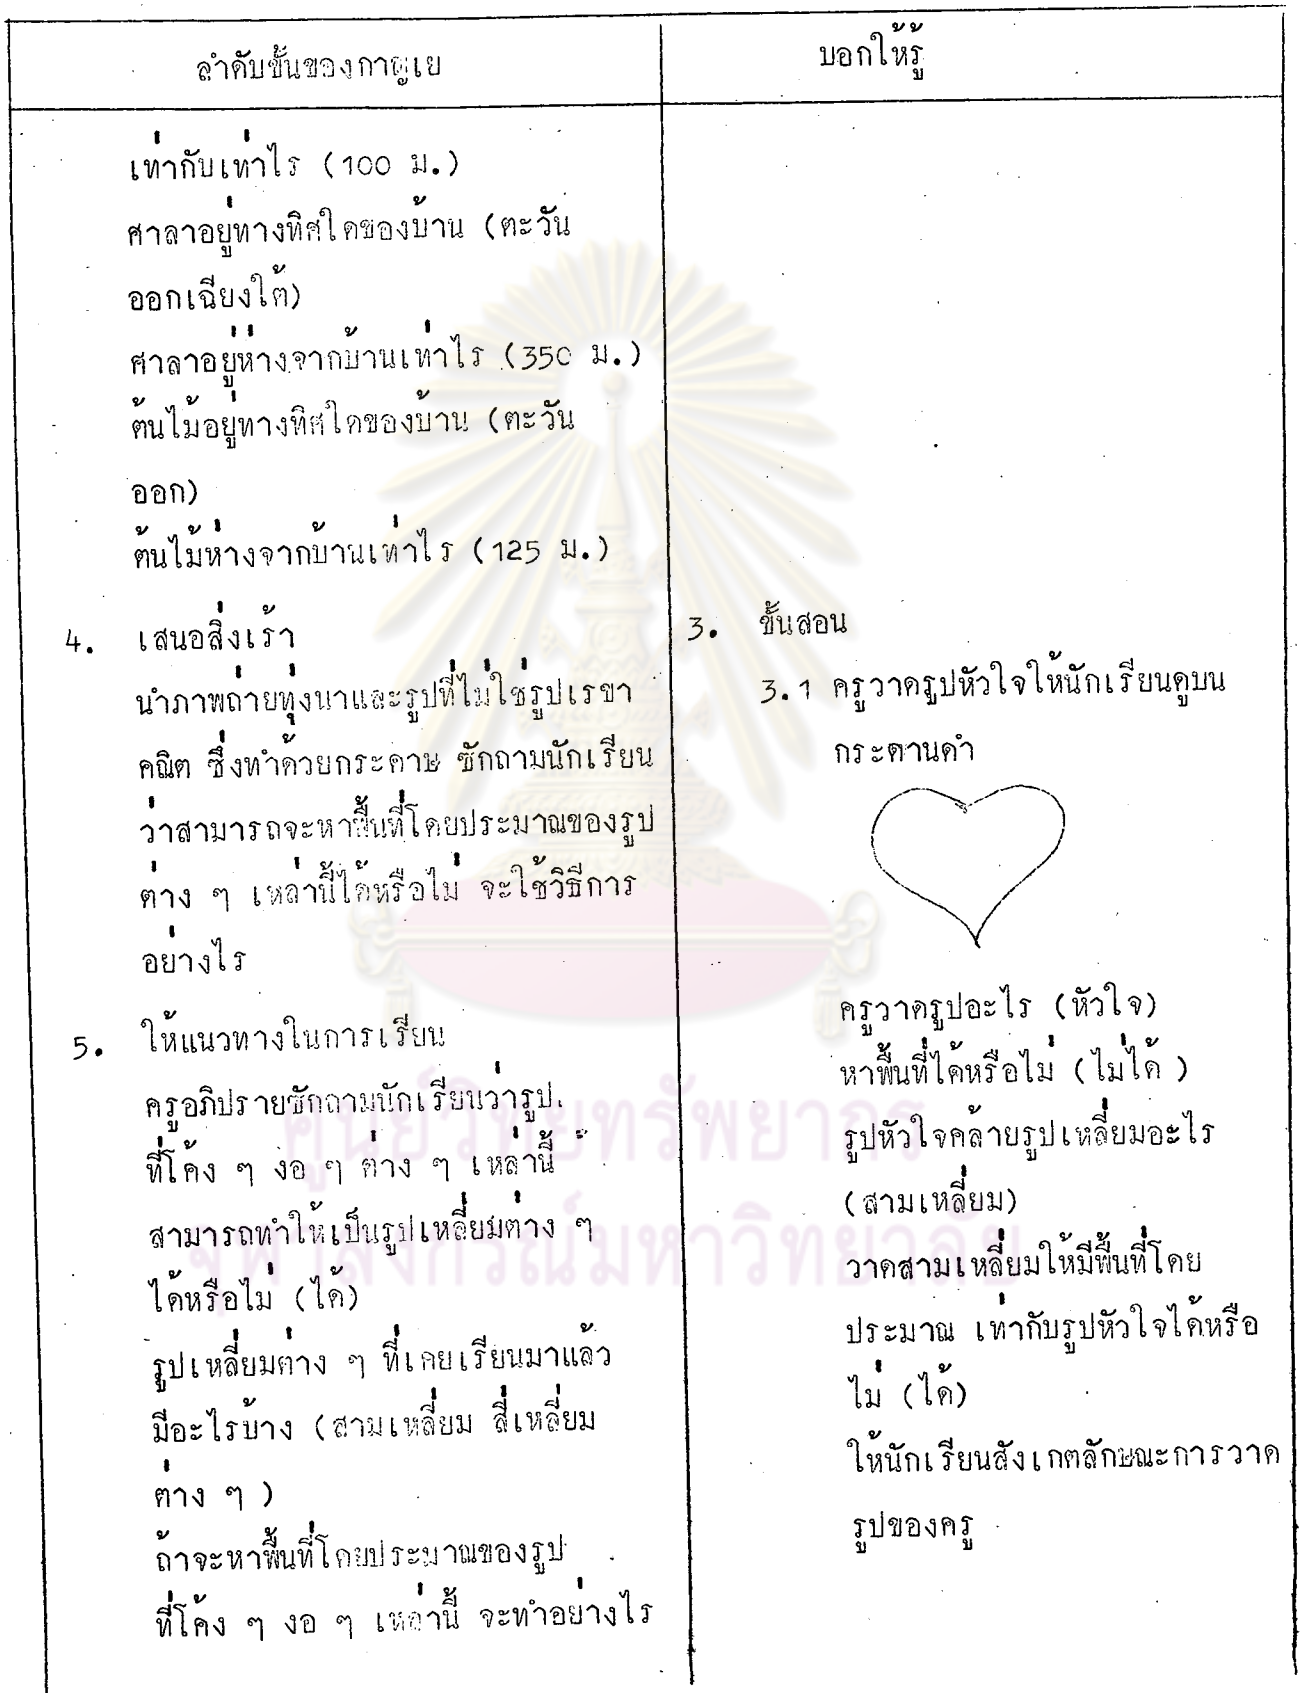 ลำดับขั้นของกาญเย
เท่ากับเท่าไร (100 ม.)
ศาลาอยู่ทางทิศใดของบ้าน (ตะวัน
ออกเฉียงใต้)
ศาลาอยู่ห่างจากบ้านเท่าไร (350 ม.)
ต้นไม้อยู่ทางทิศใดของบ้าน (ตะวัน
ออก)
ต้นไม้ห่างจากบ้านเท่าไร (125 ม.)
4. เสนอสิ่งเร้า
นำภาพถ่ายทุ่งนาและรูปที่ไม่ใช่รูปเรขา
คณิต ซึ่งทำด้วยกระดาษ ซักถามนักเรียน
ว่าสามารถจะหาพื้นที่โดยประมาณของรูป
ต่าง ๆ เหล่านี้ได้หรือไม่ จะใช้วิธีการ
อย่างไร
5. ให้แนวทางในการเรียน
ครูอภิปรายซักถามนักเรียนว่ารูป
ที่โค้ง ๆ งอ ๆ ต่าง ๆ เหล่านี้
สามารถทำให้เป็นรูปเหลี่ยมต่าง ๆ
ได้หรือไม่ (ได้)
รูปเหลี่ยมต่าง ๆ ที่เคยเรียนมาแล้ว
มีอะไรบ้าง (สามเหลี่ยม สี่เหลี่ยม
ต่าง ๆ )
ถ้าจะหาพื้นที่โดยประมาณของรูป
ที่โค้ง ๆ งอ ๆ เหล่านี้ จะทำอย่างไร
บอกให้รู้
3. ขั้นสอน
3.1 ครูวาดรูปหัวใจให้นักเรียนดูบน
กระดานดำ
ครูวาดรูปอะไร (หัวใจ)
หาพื้นที่ได้หรือไม่ (ไม่ได้ )
รูปหัวใจคล้ายรูปเหลี่ยมอะไร
(สามเหลี่ยม)
วาดสามเหลี่ยมให้มีพื้นที่โดย
ประมาณ เท่ากับรูปหัวใจได้หรือ
ไม่ (ได้)
ให้นักเรียนสังเกตลักษณะการวาด
รูปของครู
ศูนย์วิทยทรัพยากร
จุฬาลงกรณ์มหาวิทยาลัย